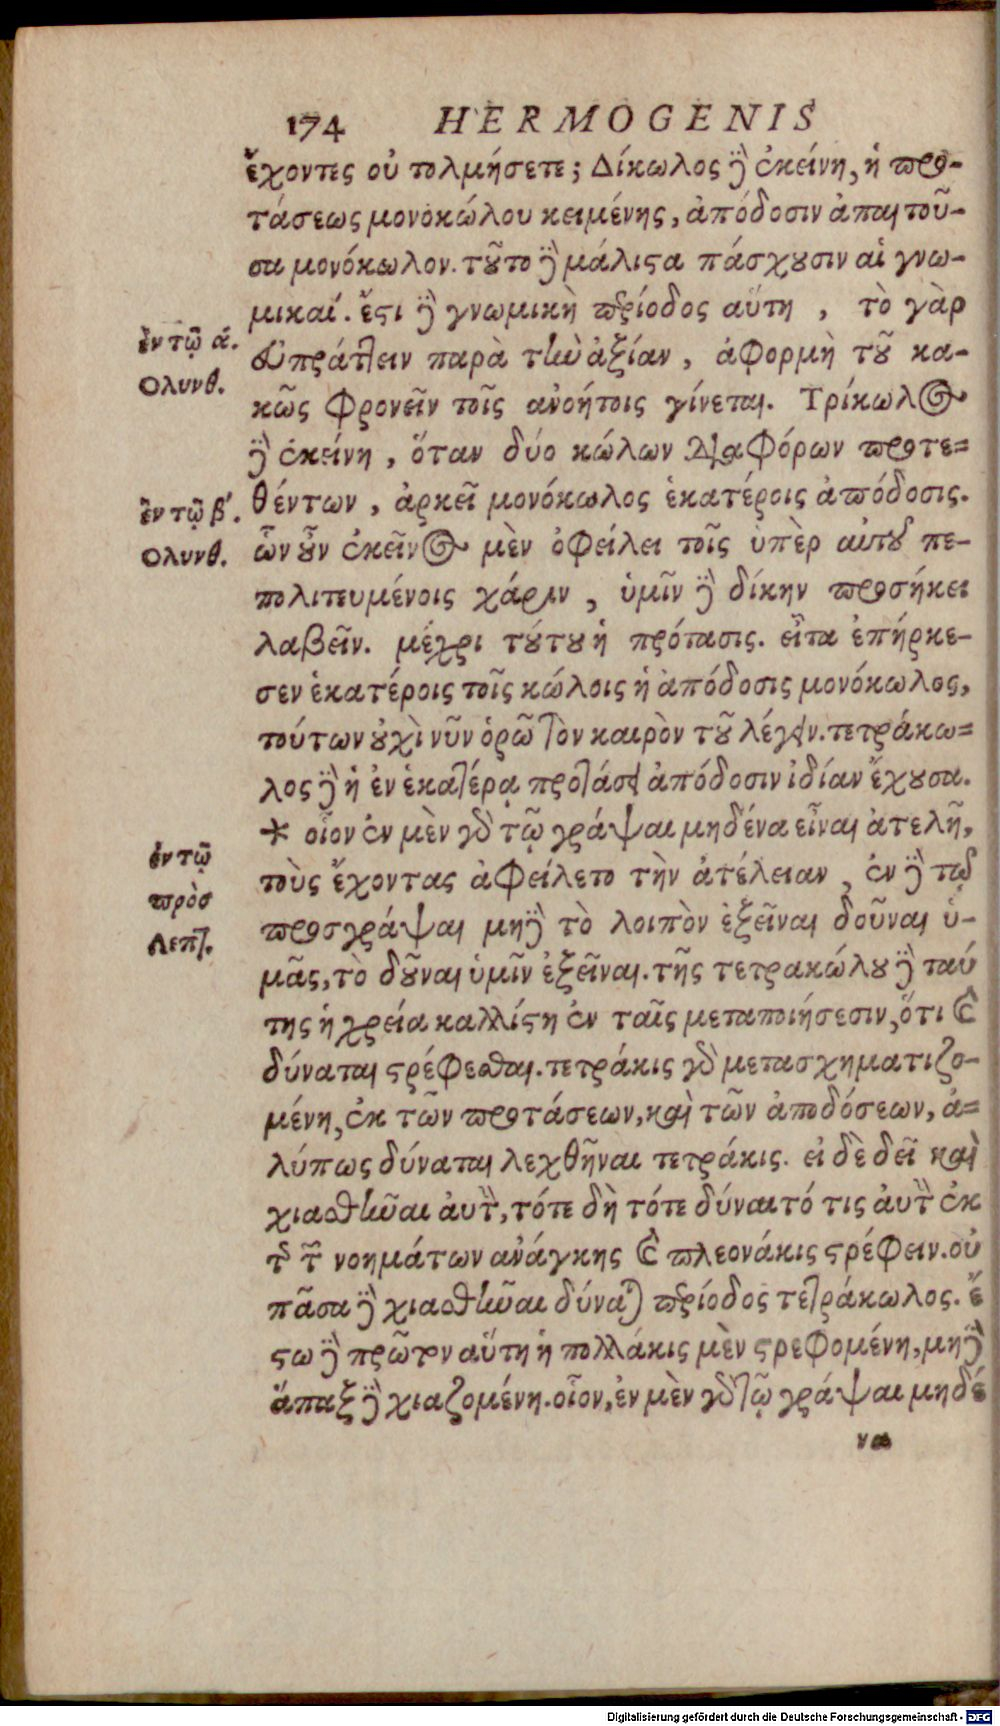 174 HERMOGENIS
ἔχοντες οὐ τολμήσετε; Δίκωλος δὲ ἐκείνη, ἡ προ-
τάσεως μονοκώλου κειμένης, ἀπόδοσιν ἀπαιτοῦ-
σα μονόκωλον. τοῦτο δὲ μάλιστα πάσχουσιν αἱ γνω-
μικαί. ἔστι δὲ γνωμικὴ περίοδος αὕτη, τὸ γὰρ
ἐν τῷ ά.
εὖ πράττειν παρὰ τὴν ἀξίαν, ἀφορμὴ τοῦ κα-
Ολυνθ.
κῶς φρονεῖν τοῖς ἀνοήτοις γίνεται. Τρίκωλος
δὲ ἐκείνη, ὅταν δύο κώλων διαφόρων προτε=
θέντων, ἀρκεῖ μονόκωλος ἑκατέροις ἀπόδοσις.
ἐν τῷ β΄.
ὧν οὖν ἐκεῖνος μὲν ὀφείλει τοῖς ὑπὲρ αὐτοῦ πε-
Ολυνθ.
πολιτευμένοις χάριν, ὑμῖν δὲ δίκην προσήκει
λαβεῖν. μέχρι τούτου ἡ πρότασις. εἶτα ἐπήρκε-
σεν ἑκατέροις τοῖς κώλοις ἡ ἀπόδοσις μονόκωλος,
τούτων οὐχὶ νῦν ὁρῶ τὸν καιρὸν τοῦ λέγειν. τετράκω=
λος δὲ ἡ ἐν ἑκατέρᾳ προτάσει ἀπόδοσιν ἰδίαν ἔχουσα.
* οἷον ἐν μὲν γὰρ τῷ γράψαι μηδένα εἶναι ἀτελῆ,
ἐν τῷ
τοὺς ἔχοντας ἀφείλετο τὴν ἀτέλειαν, ἐν δὲ τῷ
πρὸσ
προσγράψαι μηδὲ τὸ λοιπὸν ἐξεῖναι δοῦναι ὑ-
Λεπτ.
μᾶς, τὸ δοῦναι ὑμῖν ἐξεῖναι. τῆς τετρακώλου δὲ ταύ
της ἡ χρεία καλλίστη ἐν ταῖς μεταποιήσεσιν, ὅτι καὶ
δύναται στρέφεσθαι. τετράκις γὰρ μετασχηματιζο-
μένη, ἐκ τῶν προτάσεων, καὶ τῶν ἀποδόσεων, ἀ=
λύπως δύναται λεχθῆναι τετράκις. εἰ δὲ δεῖ καὶ
χιασθῆναι αὐτὴν, τότε δὴ τότε δύναιτό τις αὐτὴν ἐκ
τῆς τῶν νοημάτων ἀνάγκης καὶ πλεονάκις στρέφειν. οὐ
πᾶσα δὲ χιασθῆναι δύναται περίοδος τετράκωλος. ἔ
στω δὲ πρῶτον αὕτη ἡ πολλάκις μὲν στρεφομένη, μηδὲ
ἅπαξ δὲ χιαζομένη. οἷον, ἐν μὲν γὰρ τῷ γράψαι μηδέ
να
Digitalisierung gefördert durch die Deutsche Forschungsgemeinschaft - DFG